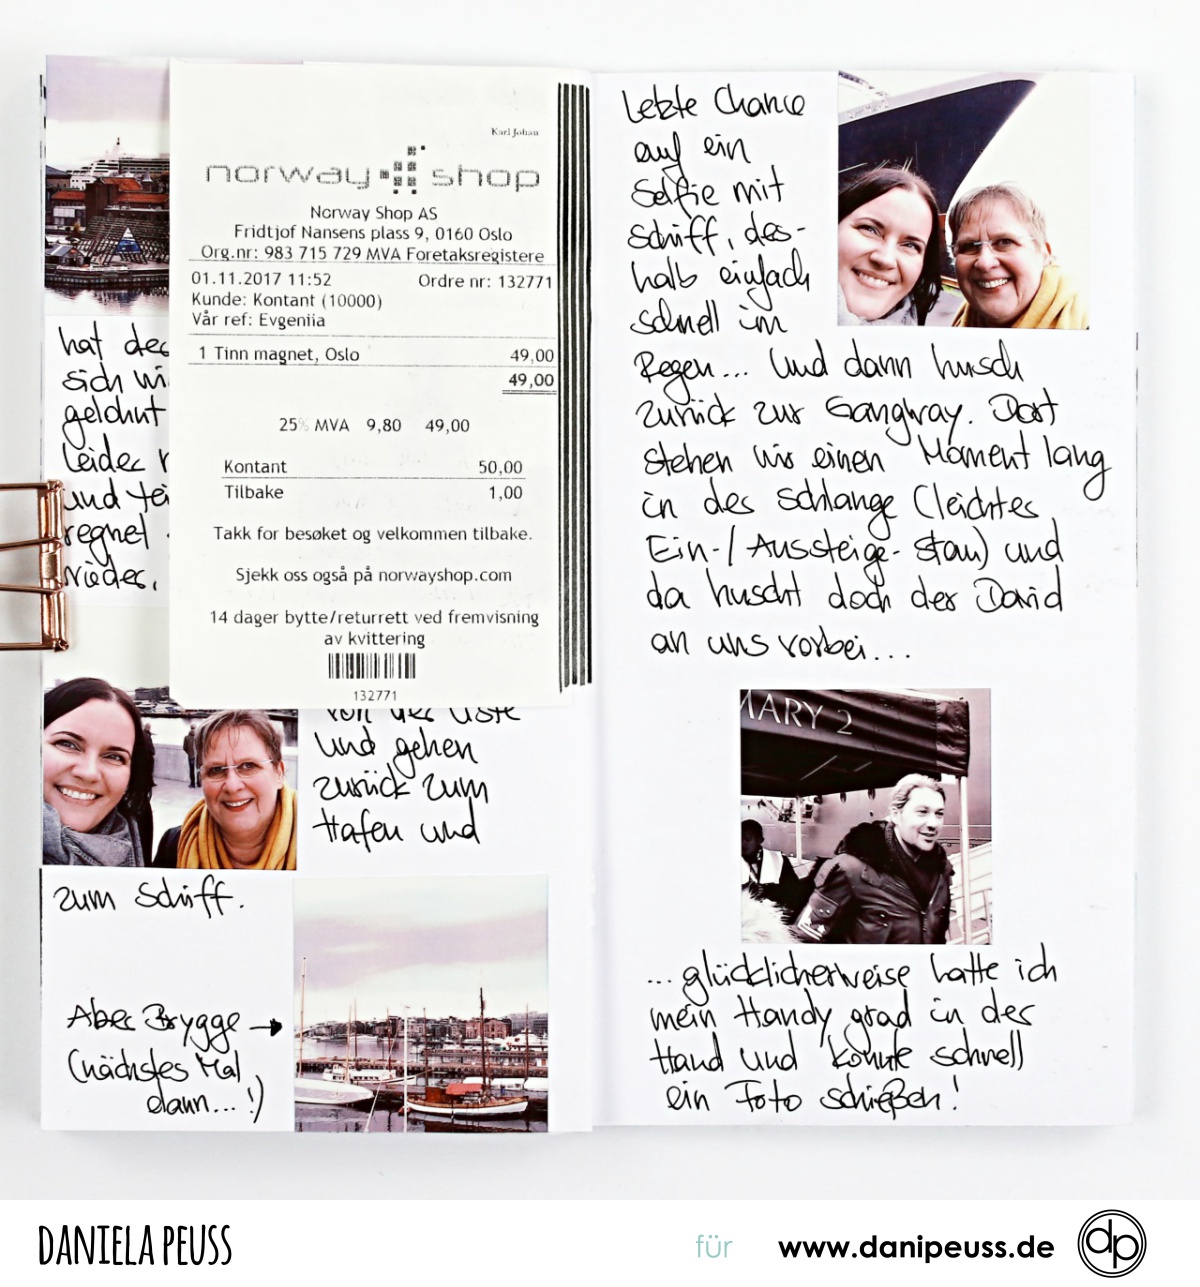 Karl Johan
norway shop
Norway Shop AS
Fridtjof Nansens plass 9, 0160 Oslo
Org.nr: 983 715 729 MVA Foretaksregistere
01.11.2017 11:52 Ordre nr: 132771
Kunde: Kontant (10000)
Vår ref: Evgeniia
1 Tinn magnet, Oslo 49,00
49,00
25% MVA 9,80 49,00
Kontant 50,00
Tilbake 1,00
Takk for besøket og velkommen tilbake.
Sjekk oss også på norwayshop.com
14 dager bytte/returrett ved fremvisning
av kvittering
132771
hat der
sich wi
gelohnt
Leider
und
regnet
wieder.
von der Liste
und gehen
zurück zum
Hafen und
zum Schiff.
Aker Brygge
(nächstes Mal
dann...!)
Letzte Chance
auf ein
Selfie mit
Schiff, des-
halb einfach
schnell im
Regen... Und dann husch
zurück zur Gangway. Dort
stehen wir einen Moment lang
in der Schlange (leichtes
Ein-/Aussteige-Stau) und
da huscht doch der David
an uns vorbei...
MARY 2
...glücklicherweise hatte ich
mein Handy grad in der
Hand und konnte schnell
ein Foto schießen!
DANIELA PEUSS
für www.danipeuss.de dp